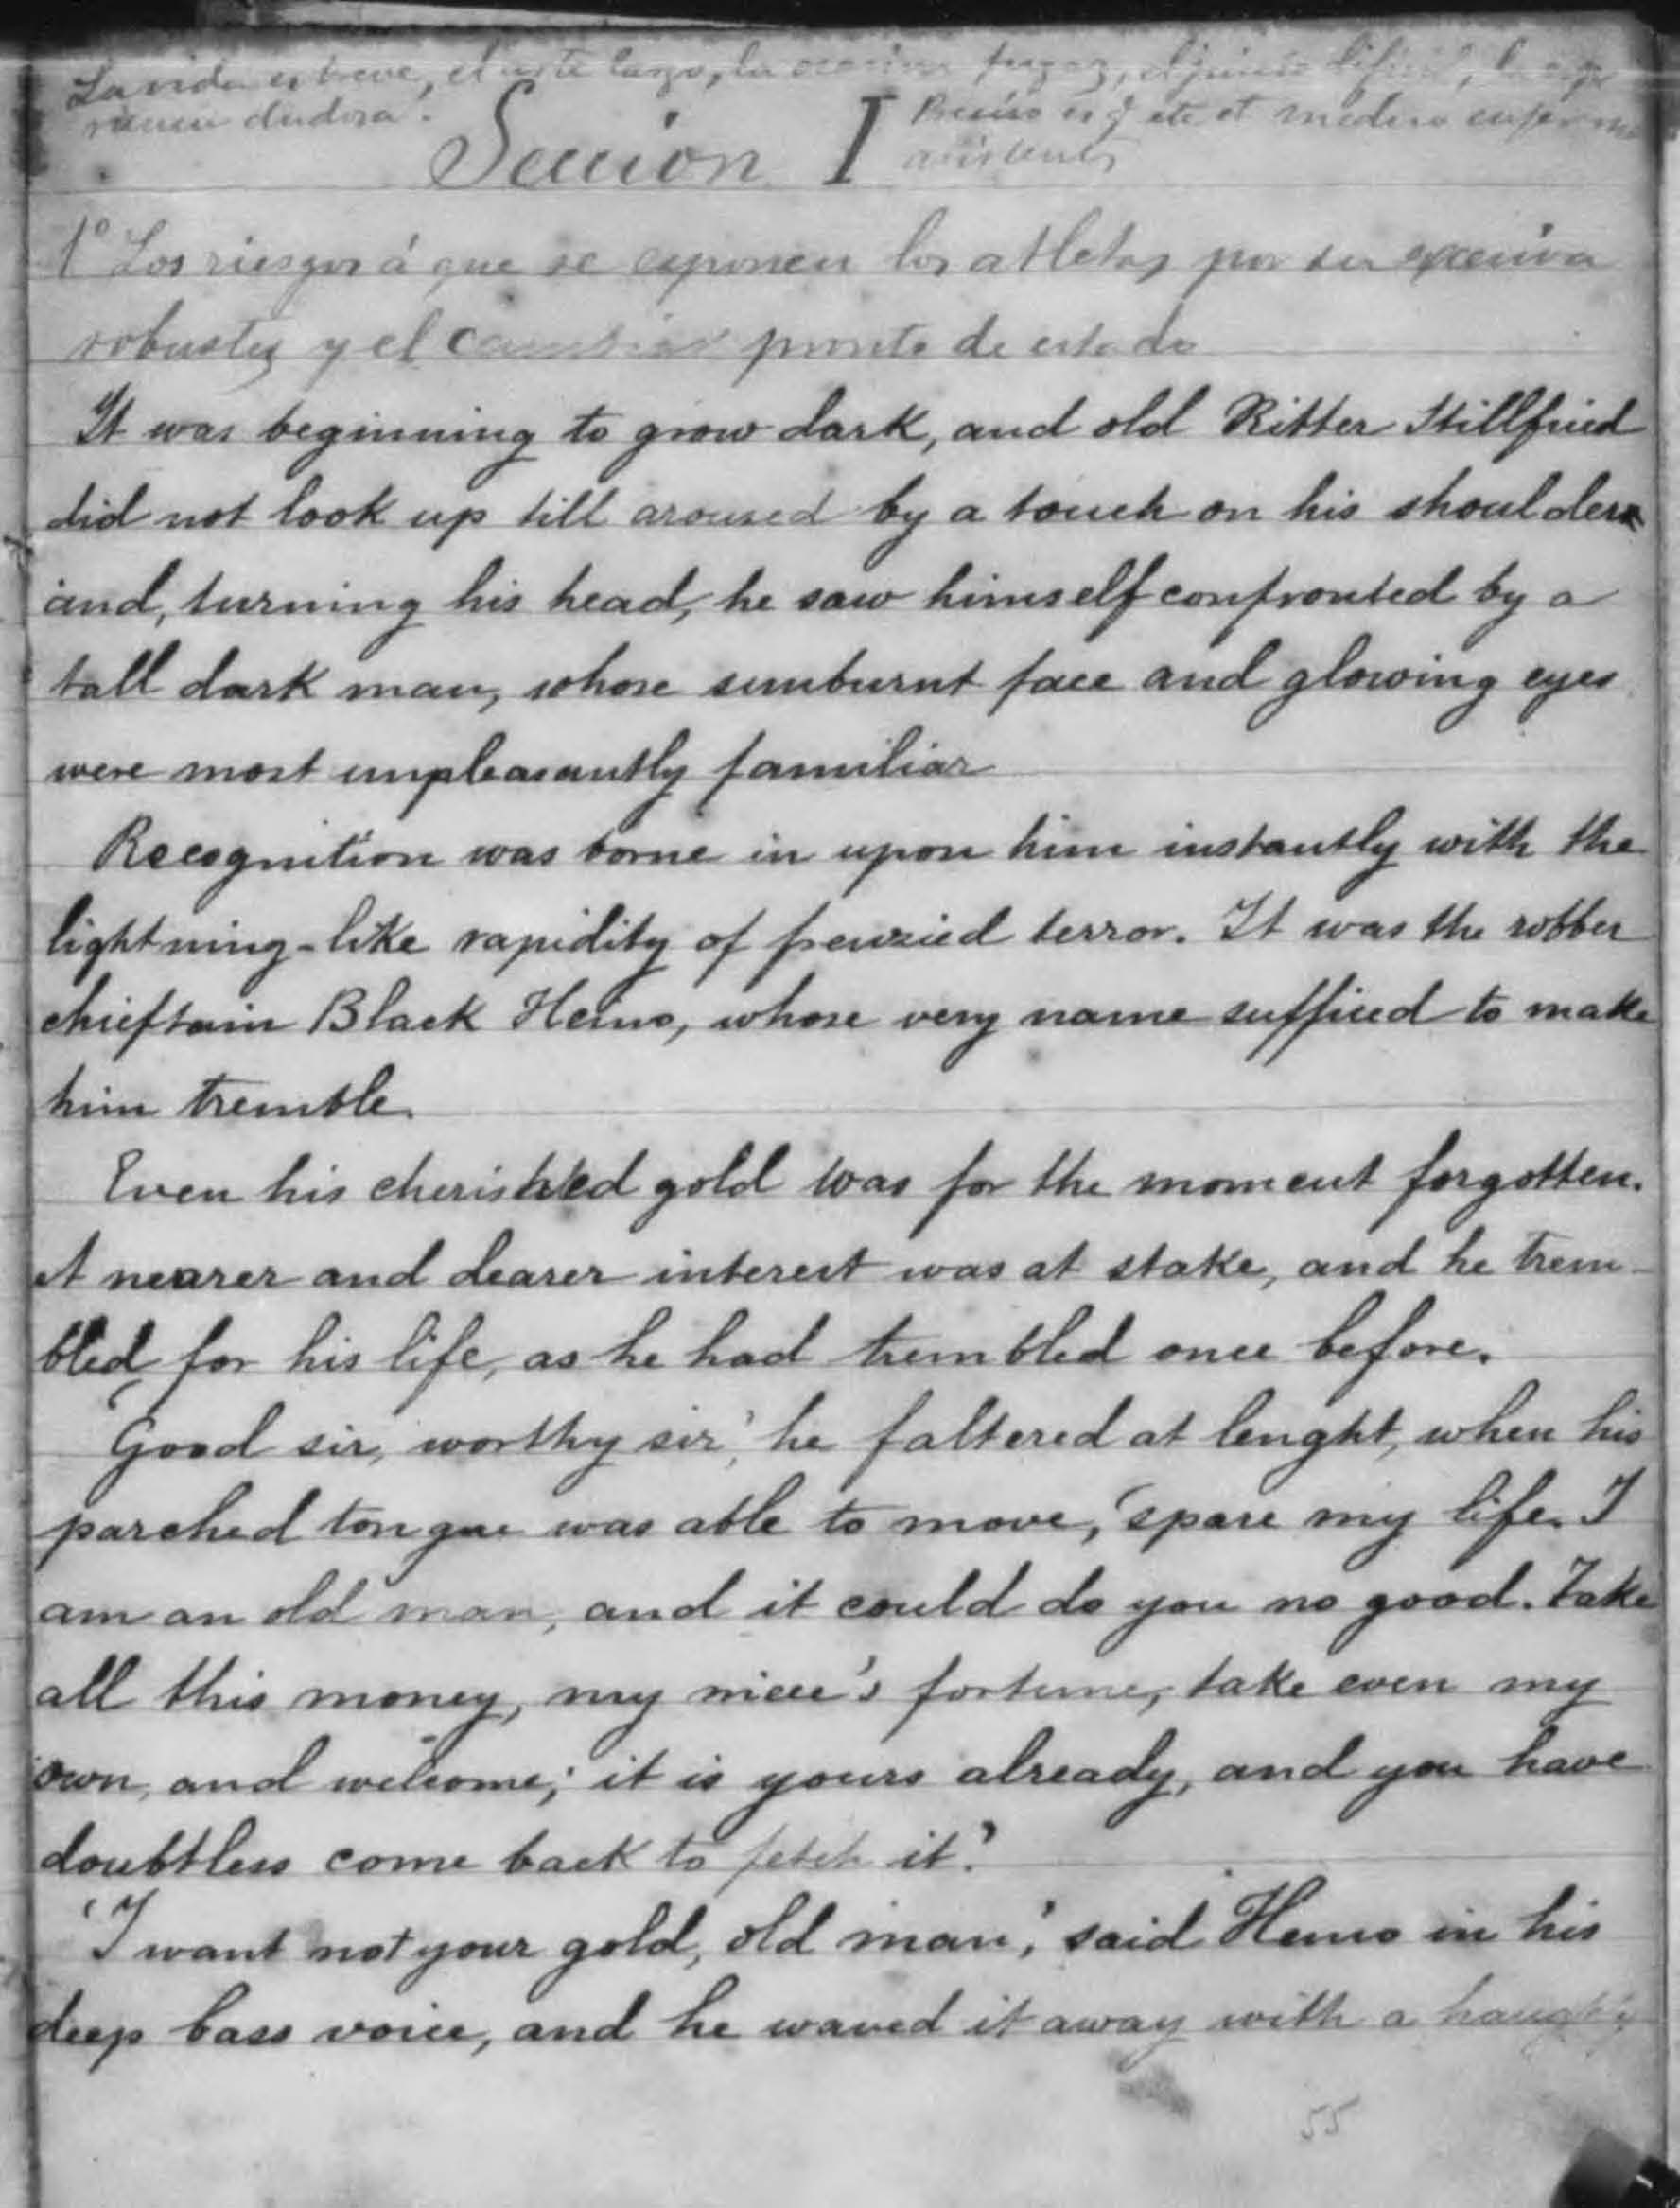 La vida es breve, el arte largo, la ocasion fugaz, el juicio dificil, la espe
riencia dudosa.
Preciso es q este el medico enfermo
asistentes
Seccion I
1º Los riesgos á que se exponen los atletas por su excesiva
robustez y el cambiar pronto de estado
It was beginning to grow dark, and old Ritter Stillfried
did not look up till aroused by a touch on his shoulder
and, turning his head, he saw himself confronted by a
tall dark man, whose sunburnt face and glowing eyes
were most unpleasantly familiar
Recognition was borne in upon him instantly with the
lightning-like rapidity of frenzied terror. It was the robber
chieftain Black Heino, whose very name sufficed to make
him tremble.
Even his cherished gold was for the moment forgotten.
A nearer and dearer interest was at stake, and he trem-
bled for his life, as he had trembled once before.
'Good sir, worthy sir,' he faltered at lenght, when his
parched tongue was able to move, 'spare my life. I
am an old man, and it could do you no good. Take
all this money, my niece's fortune, take even my
own, and welcome; it is yours already, and you have
doubtless come back to fetch it.'
'I want not your gold, old man,' said Heino in his
deep bass voice, and he waved it away with a haughty
55